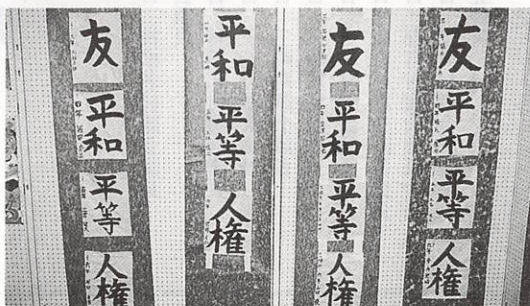 友
平和
平等
人権
友
平和
平等
人権
平和
平等
人権
友
平和
平等
人権